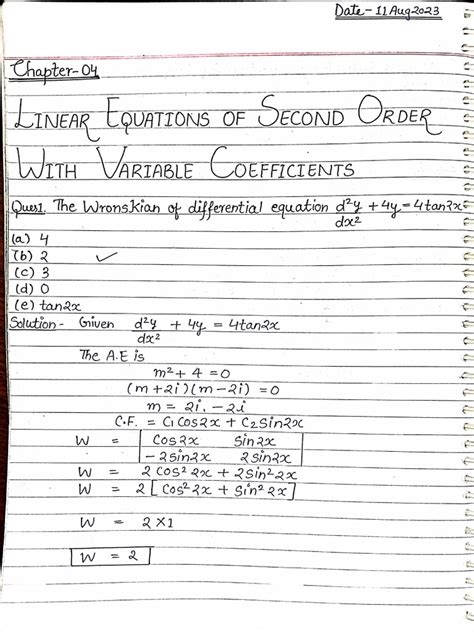 Date - 11 Aug 2023
Chapter-04
LINEAR EQUATIONS OF SECOND ORDER
WITH VARIABLE COEFFICIENTS
Ques1. The Wronskian of differential equation d²y/dx² + 4y = 4tan2x
(a) 4
(b) 2 ✓
(c) 3
(d) 0
(e) tan2x
Solution - Given d²y/dx² + 4y = 4tan2x
The A.E is
m² + 4 = 0
(m + 2i)(m - 2i) = 0
m = 2i, -2i
C.F. = C₁Cos2x + C₂Sin2x
W = | Cos2x Sin2x |
| -2Sin2x 2Sin2x |
W = 2 Cos² 2x + 2Sin² 2x
W = 2 [ Cos² 2x + Sin² 2x ]
W = 2 × 1
W = 2